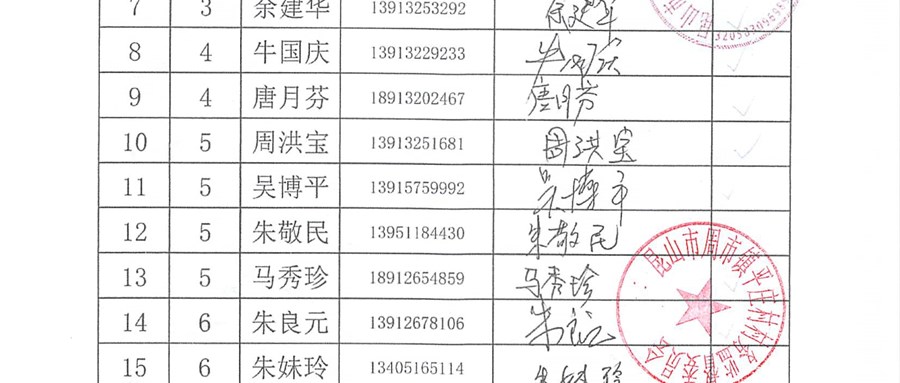 7 3 余建华 13913253292 余建华
8 4 牛国庆 13913229233 牛国庆
9 4 唐月芬 18913202467 唐月芬
10 5 周洪宝 13913251681 周洪宝
11 5 吴博平 13915759992 吴博平
12 5 朱敬民 13951184430 朱敬民
13 5 马秀珍 18912654859 马秀珍
14 6 朱良元 13912678106 朱良元
15 6 朱妹玲 13405165114
昆山市周市镇平庄村村务监督委员会
昆山市